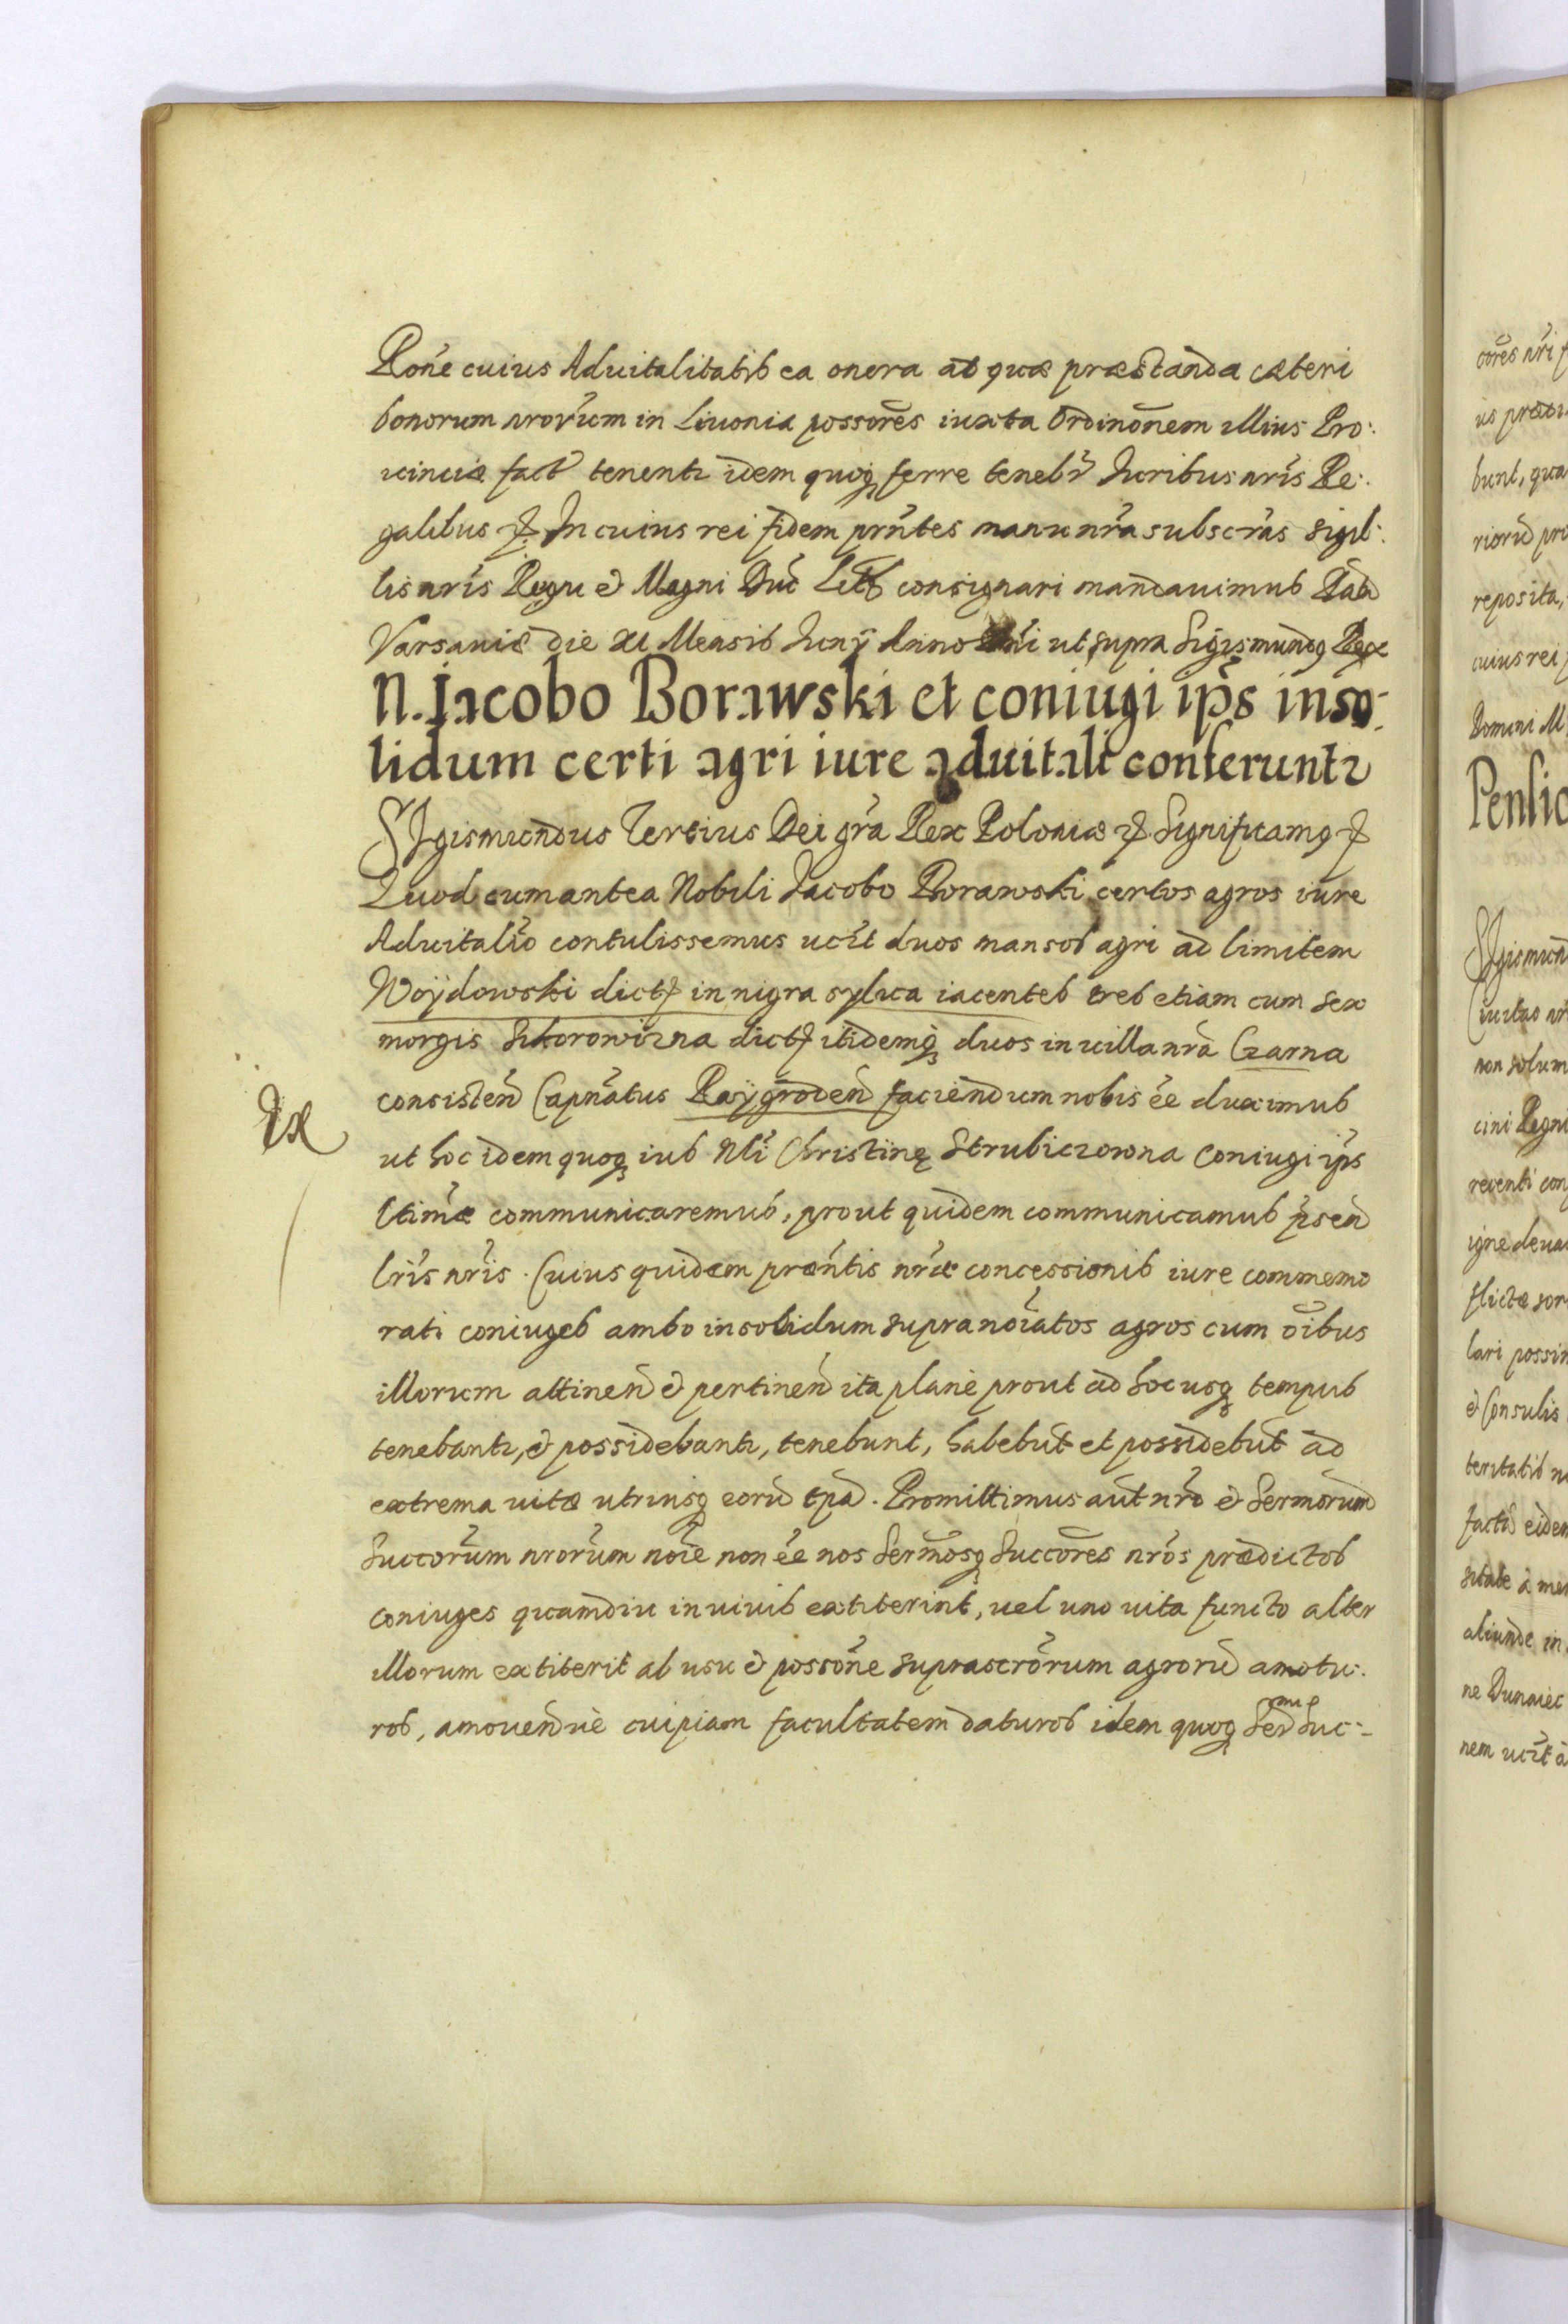 Rõne cuius Aduitalitatis ea onera ad quæ præstanda cæteri
bonorum nror̃um in Liuonia possor̃es iuxta Ordinõnem illius Pro:
uinciæ fact̃ tenentr idem quoq ferre tenebr̃ Iuribus nr̃is Re:
galibus In cuius rei fidem pr̃ntes manu nr̃a subscr̃as sigil:
lis nr̃is Regni et Magni Duc̃ Litt consignari mandauimus Dat
Varsauiæ die XI Mensis Iunÿ Anno Dñi ut supra Sigismundq Rex
N. Jacobo Borawski et coniugi ip̃s inso-
lidum certi agri iure aduitali conferuntr
SIgismundus Tertius Dei gr̃a Rex Poloniæ Significamq
Quod cum antea Nobili Jacobo Borawski certos agros iure
Aduitalĩo contulissemus uc̃lt duos mansos agri ad limitem
Woÿdowski dict in nigra sylua iacentes tres etiam cum sex
morgis Sikorowizna dict itidemq duos in uilla nr̃a Czarna
consisteñ Capñatus Raÿgrodeñ faciendum nobis ẽe duximus
ut hoc idem quoq ius Nli Christinę Strubiczowna Coniugi ip̃s
ltimæ communicaremus, prout quidem communicamus p̃señ
lr̃is nr̃is. Cuius quidem præñtis nr̃æ concessionis iure commemo
rati coniuges ambo insolidum supranoĩatos agros cum õibus
illorum attineñ et pertineñ ita planè prout ad hoc usq tempus
tenebantr, et possidebantr, tenebunt, habebũt et possidebũt ad
extrema uitæ utriusq eorũ tp̃a. Promittimus aũt nr̃o et Sermorum
Succor̃um nror̃um noĩe non ẽe nos Serm̃osq Succor̃es nr̃os prædictos
coniuges quamdiu in uiuis extiterint, uel uno uita functo alter
illorum extiterit ab usu et possõne suprascr̃orum agrorũ amotu:
ros, amouendiue cuipiam facultatem daturos idem quoq Ser Suc:
cor̃es nr̃i
bunt, qua
reposita,
cuius rei
Domini M
SIgismun
non solum
cini Regni
igne deua
lari possin
et Consulis
aliunde in
ne Dunaiec
nem uc̃lt a